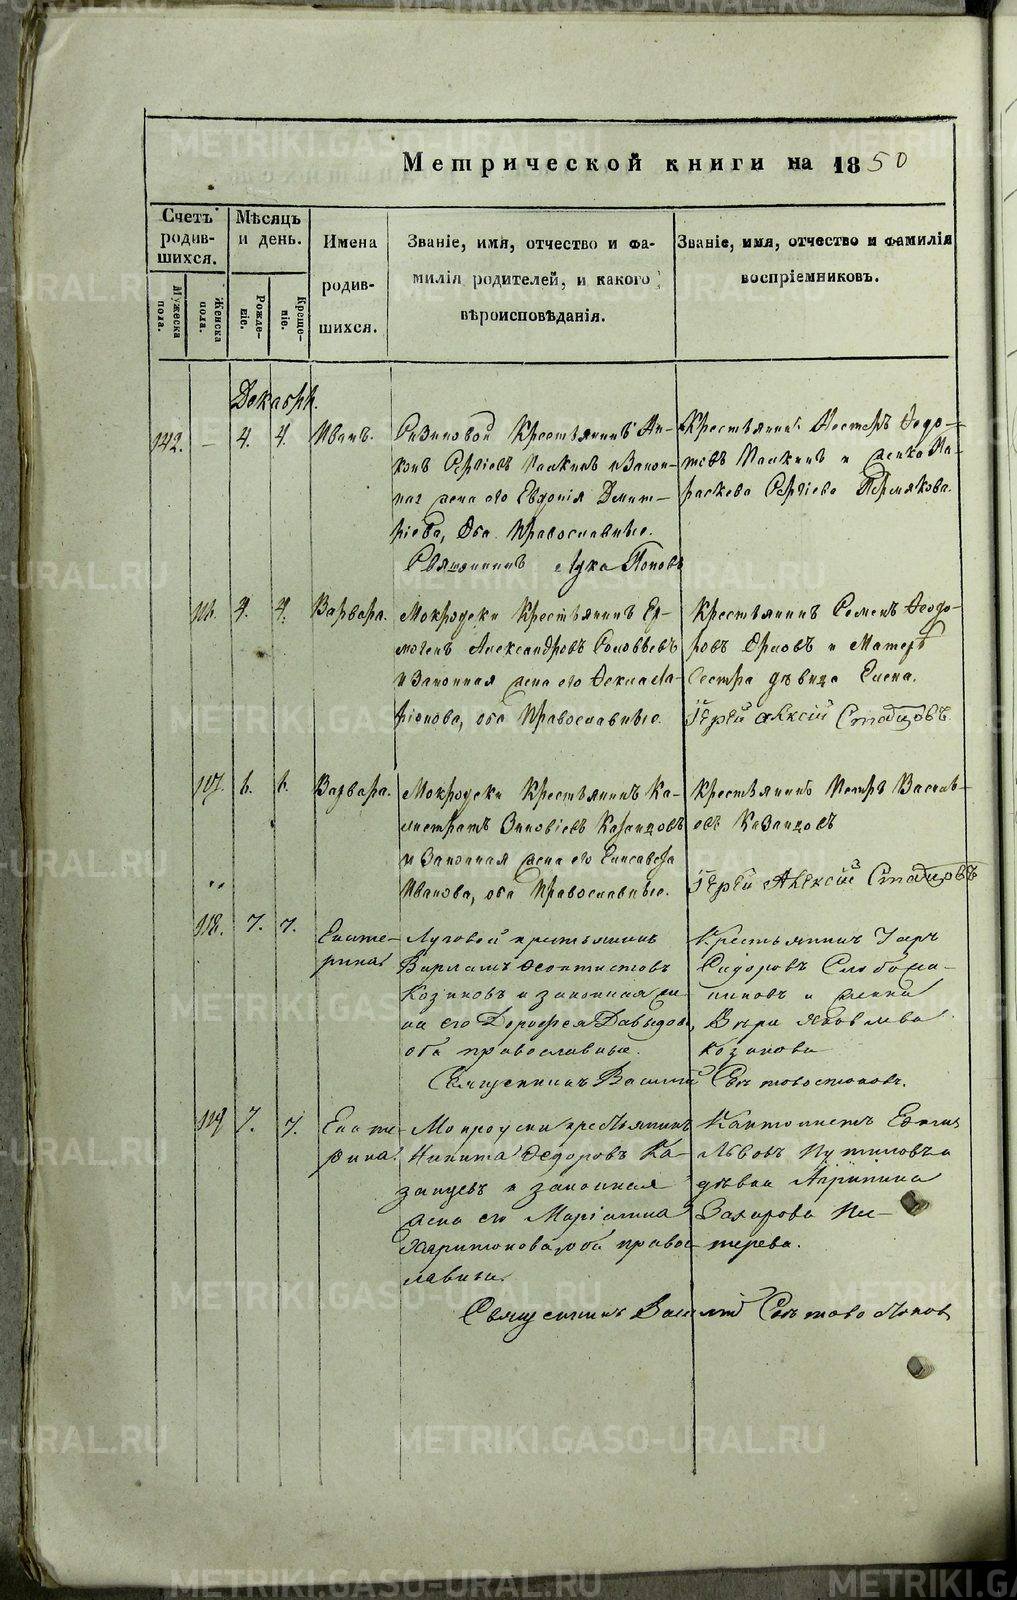 Метрической книги на 1850
Счетъ родив-шихся.
Мужеска пола.
Женска пола.
Мѣсяцъ и день.
Рожде-ніе.
Креще-ніе.
Имена родив-шихся.
Званіе, имя, отчество и фа-
милія родителей, и какого
вѣроисповѣданія.
Званіе, имя, отчество и фамилія
воспріемниковъ.
Декабрь.
142. — 4. 4. Иванъ.
Крестьянинъ
и закон-
ная жена его Евдокія Димит-
ріева, Оба Православные.
Священникъ Лука Поповъ
Крестьянинъ Несторъ Ѳедо-
товъ и женка Па-
раскева Сергіева Пермякова.
4. 4. Варвара.
Мокроуски Крестьянинъ Ер-
могенъ Александровъ Соловьевъ
и Законная жена его Ѳекла Ла-
ріонова, оба Православные.
Крестьянинъ Семенъ Ѳеодо-
ровъ Орловъ и Матери
Сестра дѣвица Елена.
Іерей Алексій
117. 6. 6. Варвара.
Мокроуски Крестьянинъ Ка-
листратъ Зиновіевъ Казанцовъ
и Законная жена его Елисавета
Иванова, оба Православные.
Крестьянинъ Петръ Василь-
евъ Казанцовъ
Іерей Алексій
118. 7. 7. Екате-
рина
Луговой крестьянинъ
Варламъ Ѳеоктистовъ
Козаковъ и законная же-
на его Дороѳея Давыдова,
оба православные.
Священникъ Василій
Крестьянинъ
Сидоровъ
и женка
Вѣра Яковлева
Козакова
119 7. 7. Екате-
рина.
Мокроуски крестьянинъ
Никита Ѳедоровъ Ка-
занцевъ и законная
жена его Маріамна
Харитонова, оба правос-
лавны.
Кантонистъ
Львовъ Путиловъ и
дѣвка Агрипина
Захарова Пе-
терева.
Священникъ Василій
METRIKI.GASO-URAL.RU